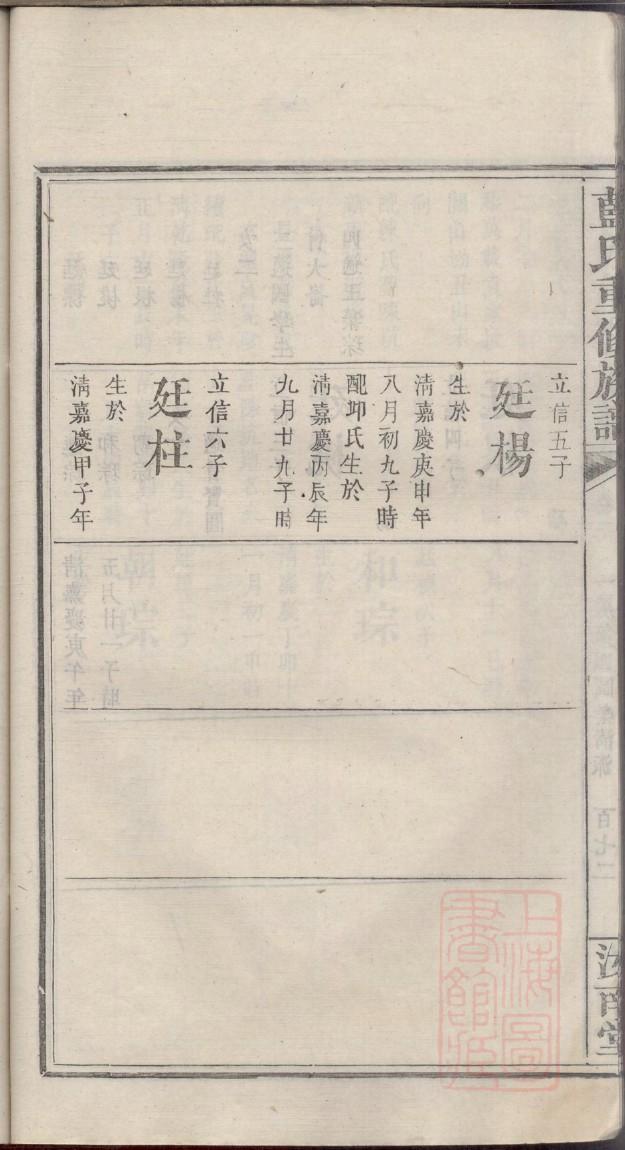 藍氏重修族譜
汝南堂
立信五子
廷楊
生於
清嘉慶庚申年
八月初九子時
配邱氏生於
清嘉慶丙辰年
九月廿九子時
立信六子
廷柱
生於
清嘉慶甲子年
上海圖
書館藏